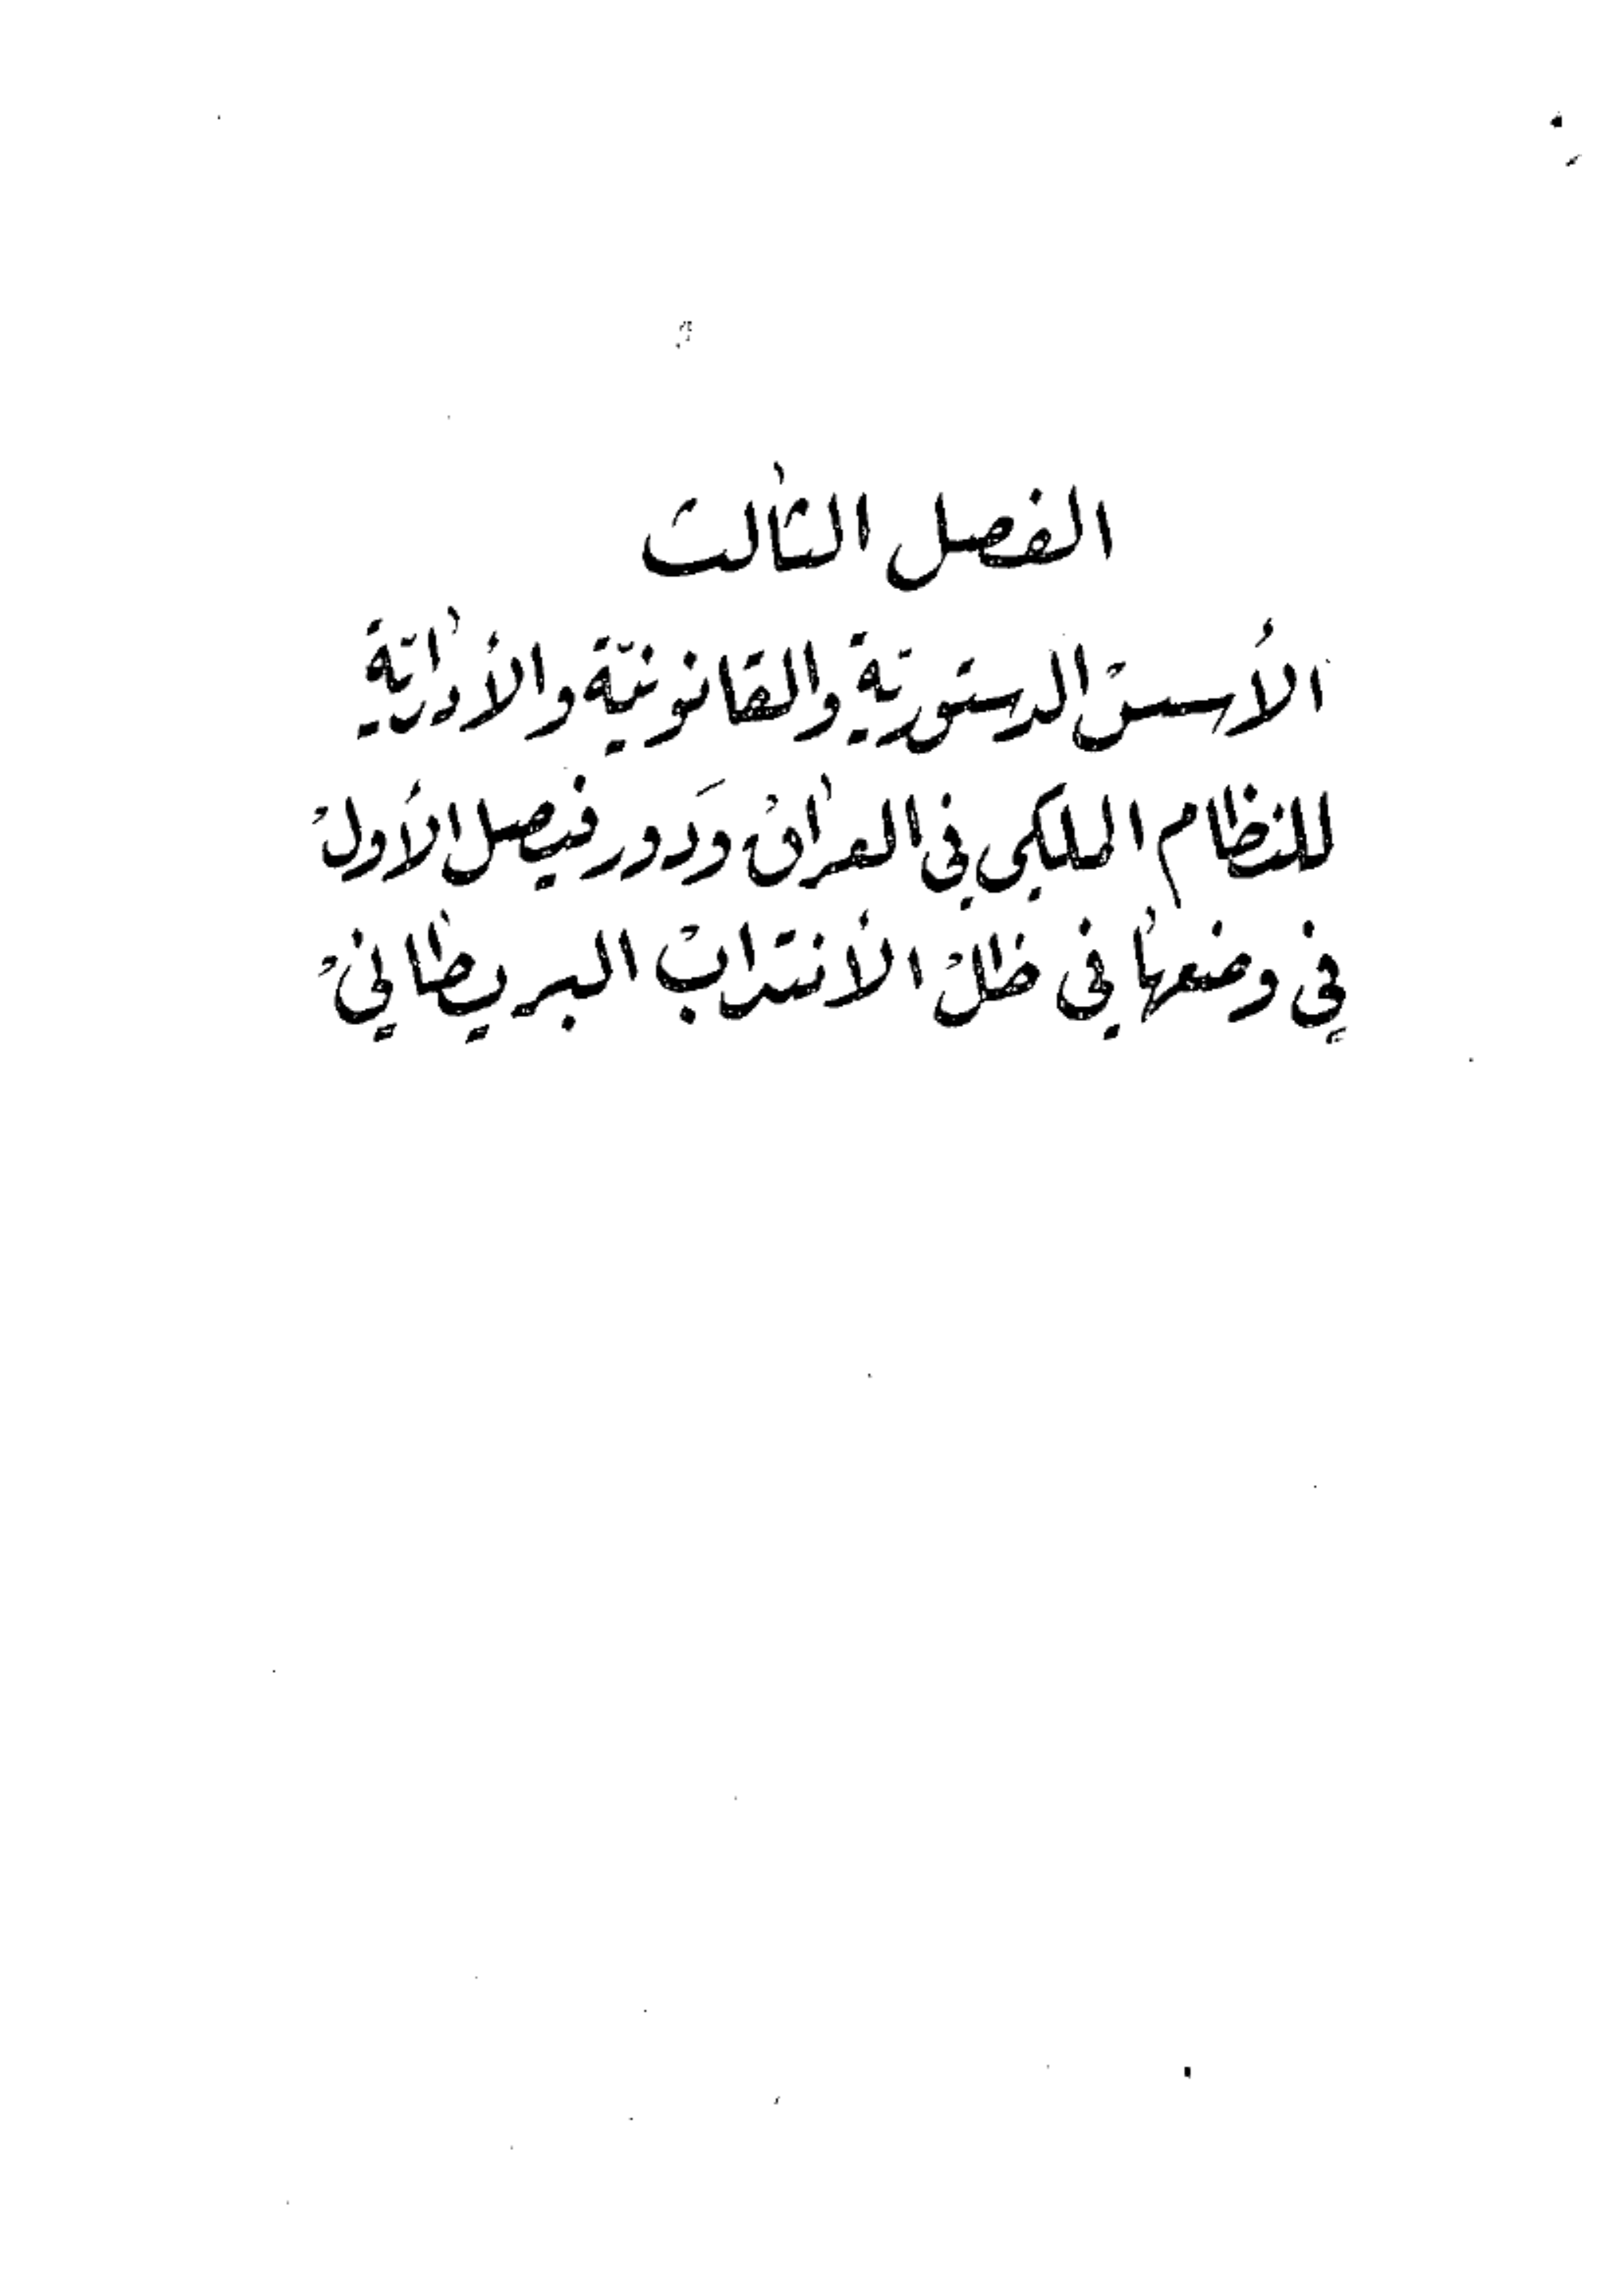 الفصل الثالث
الأسس الدستورية والقانونية والأدارية
للنظام الملكي في العراق ودور فيصل الأول
في وضعها في ظل الأنتداب البريطاني